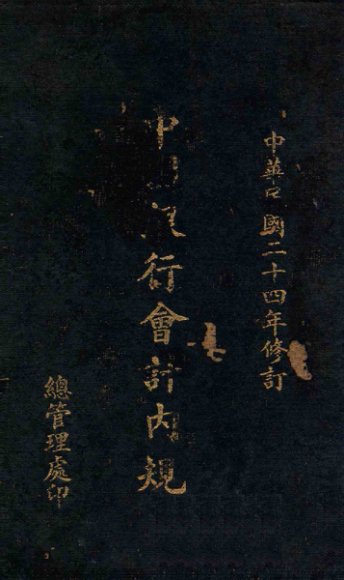 中華民國二十四年修訂
中國銀行會計內規
總管理處印